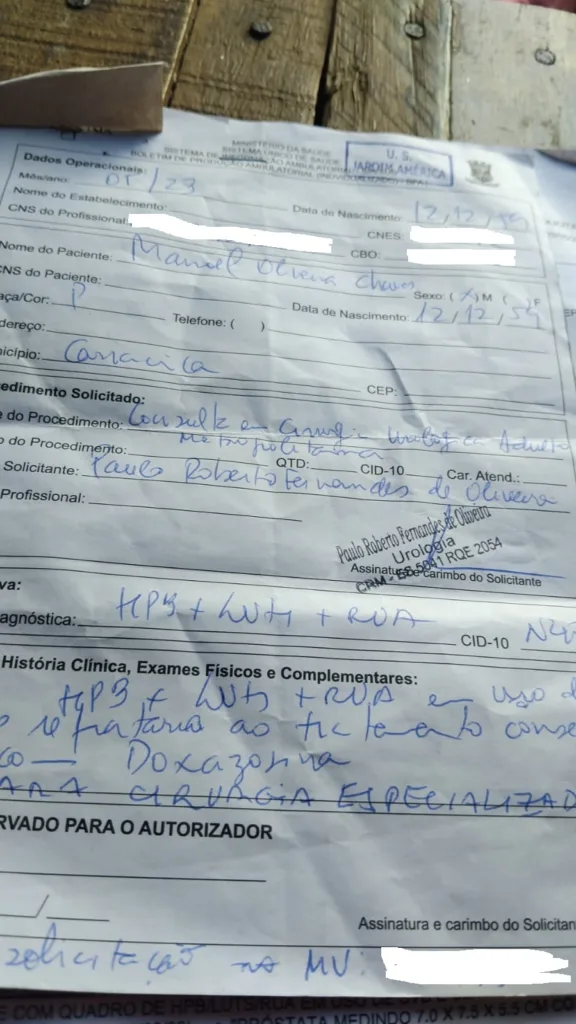 MINISTÉRIO DA SAÚDE
SISTEMA ÚNICO DE SAÚDE
SISTEMA DE INFORMAÇÃO AMBULATORIAL
BOLETIM DE PRODUÇÃO AMBULATORIAL (INDIVIDUALIZADO)
U. S.
JARDIM AMÉRICA
Dados Operacionais:
Mês/ano: 05/23 Data de Nascimento: 12,12,59
Nome do Estabelecimento: CNES:
CNS do Profissional: CBO:
Nome do Paciente: Manoel Oliveira Chaves
CNS do Paciente: Sexo: (X) M ( F
aça/Cor: P Telefone: ( ) Data de Nascimento: 12,12,59
dereço:
icípio: Cariacica CEP:
edimento Solicitado:
e do Procedimento: Consulta em Cirurgia Urológica Adulto
Metropolitana
o do Procedimento: QTD: CID-10 Car. Atend.:
Solicitante: Paulo Roberto Fernandes de Oliveira
Profissional:
Paulo Roberto Fernandes de Oliveira
Urologia
CRM - ES 5841 RQE 2054
Assinatura e carimbo do Solicitante
va:
agnóstica: HPB + LUTS + RUA CID-10 N40
História Clínica, Exames Físicos e Complementares:
HPB + LUTS + RUA em uso d
refratário ao tratamento conse
co — Doxazosina
ARA CIRURGIA ESPECIALIZAD
RVADO PARA O AUTORIZADOR
Assinatura e carimbo do Solicitan
solicitação no MV:
E COM QUADRO DE HPB LUTS/RUA EM USO DE
PRÓSTATA MEDINDO 7.0 X 7.5 X 5.5 CM CO